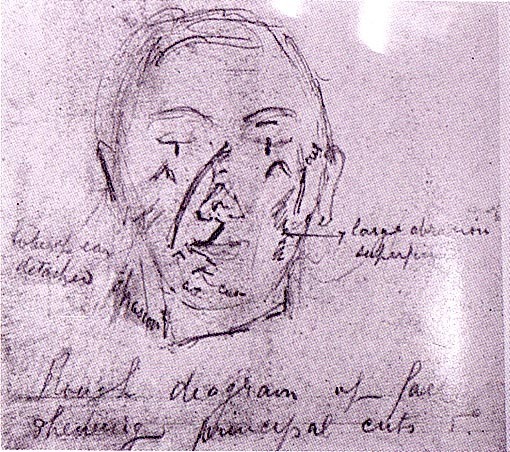 cut
large abrasion
Lobe of ear
detached
abrasion
cut
Rough diagram of face
shewing principal cuts